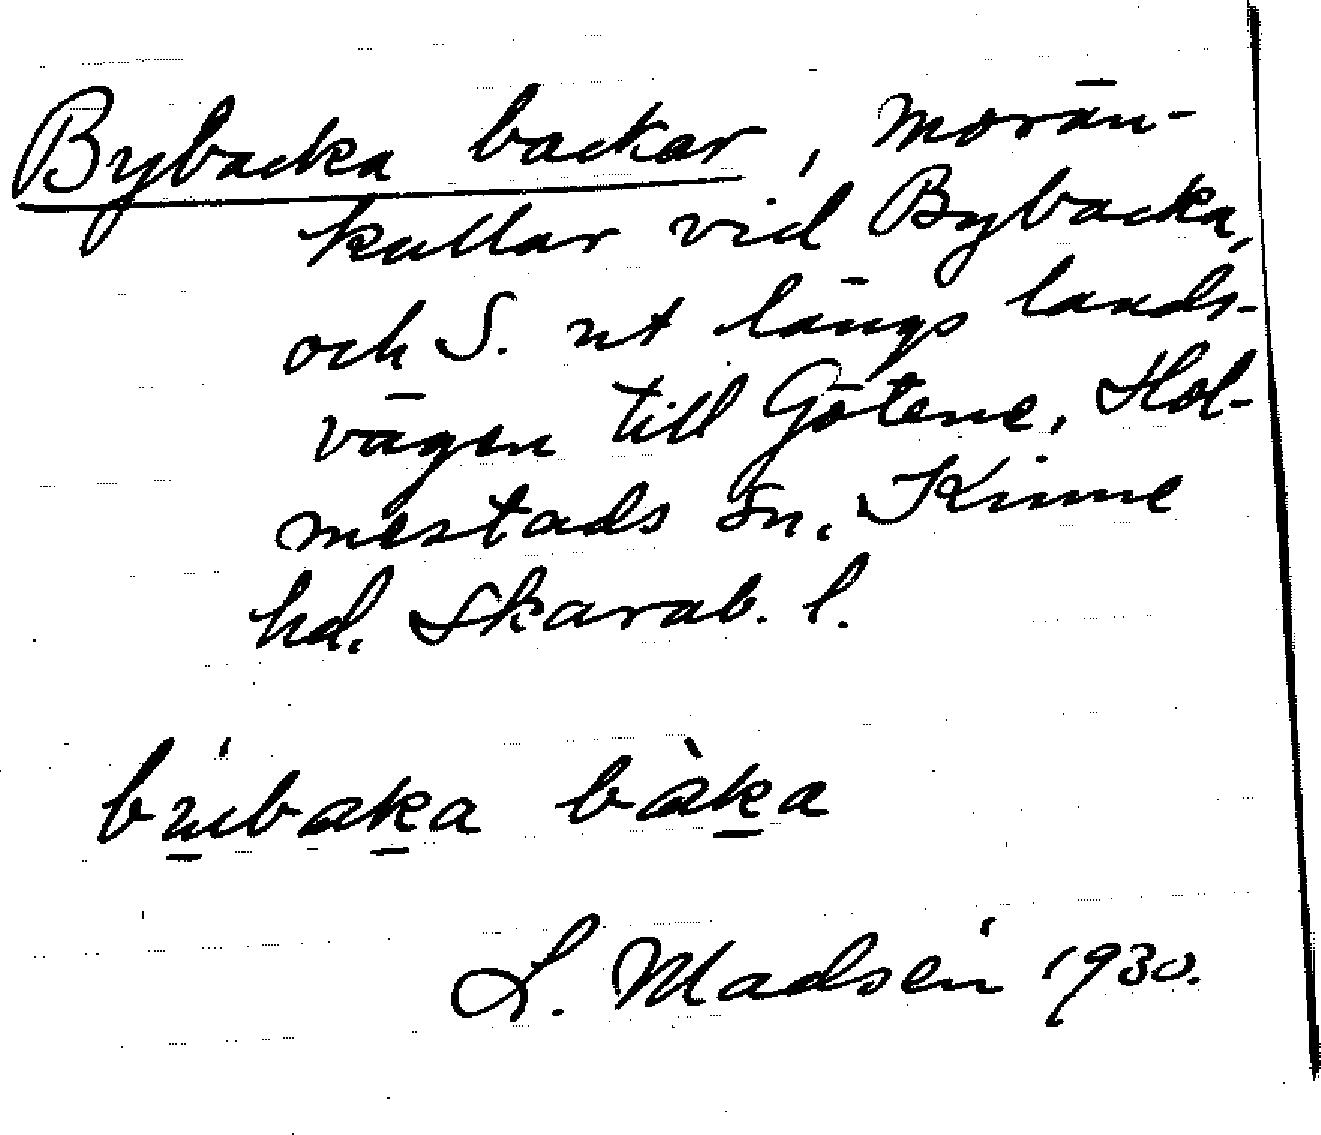 Bybacka backar, morän-
kullar vid Bybacka,
och S. ut längs lands-
vägen till Götene, Hol-
mestads sn. Kinne
hd. Skarab. l.
L. Madsén 1930.